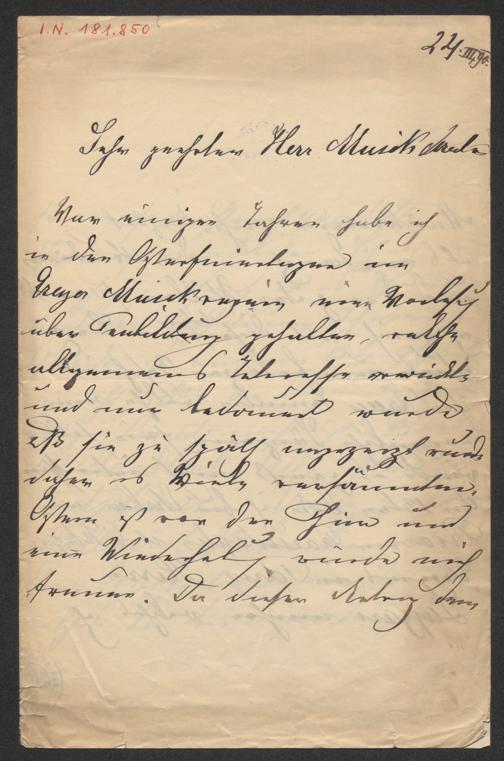 I.N. 181.850
24. III. 90.
Sehr geehrter Herr Musik
Vor einigen Jahren habe ich
in den Osterfeiertagen im
Musikverein eine Vorlesg
über Tonbildung gehalten, welche
allgemeines Interesse erweckte
und nur bedauert wurde
daß sie zu spät angezeigt wurde
daher es Viele versäumten.
Ostern ist vor der Thür und
eine Wiederholg würde mich
freuen. Da dieser Antrag dem